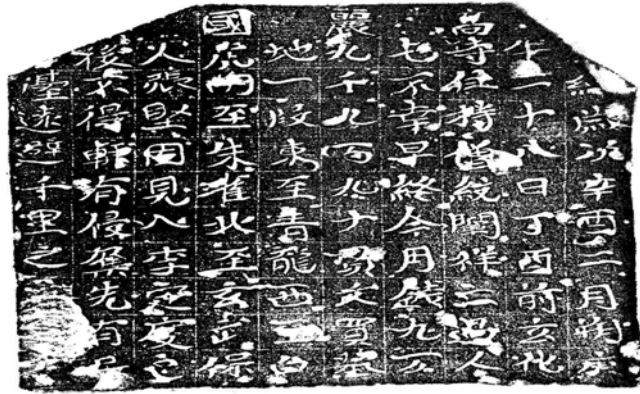 歲次辛酉二月朔庚
午二十八日丁酉前玄化
高守任
不幸早終今用錢九万
九千九百九十貫文買墓
地一段東至青龍西至白
虎南至朱雀北至玄武保
人張堅固見人李定度已
後不得輒有侵奪先有居
遠避千里之